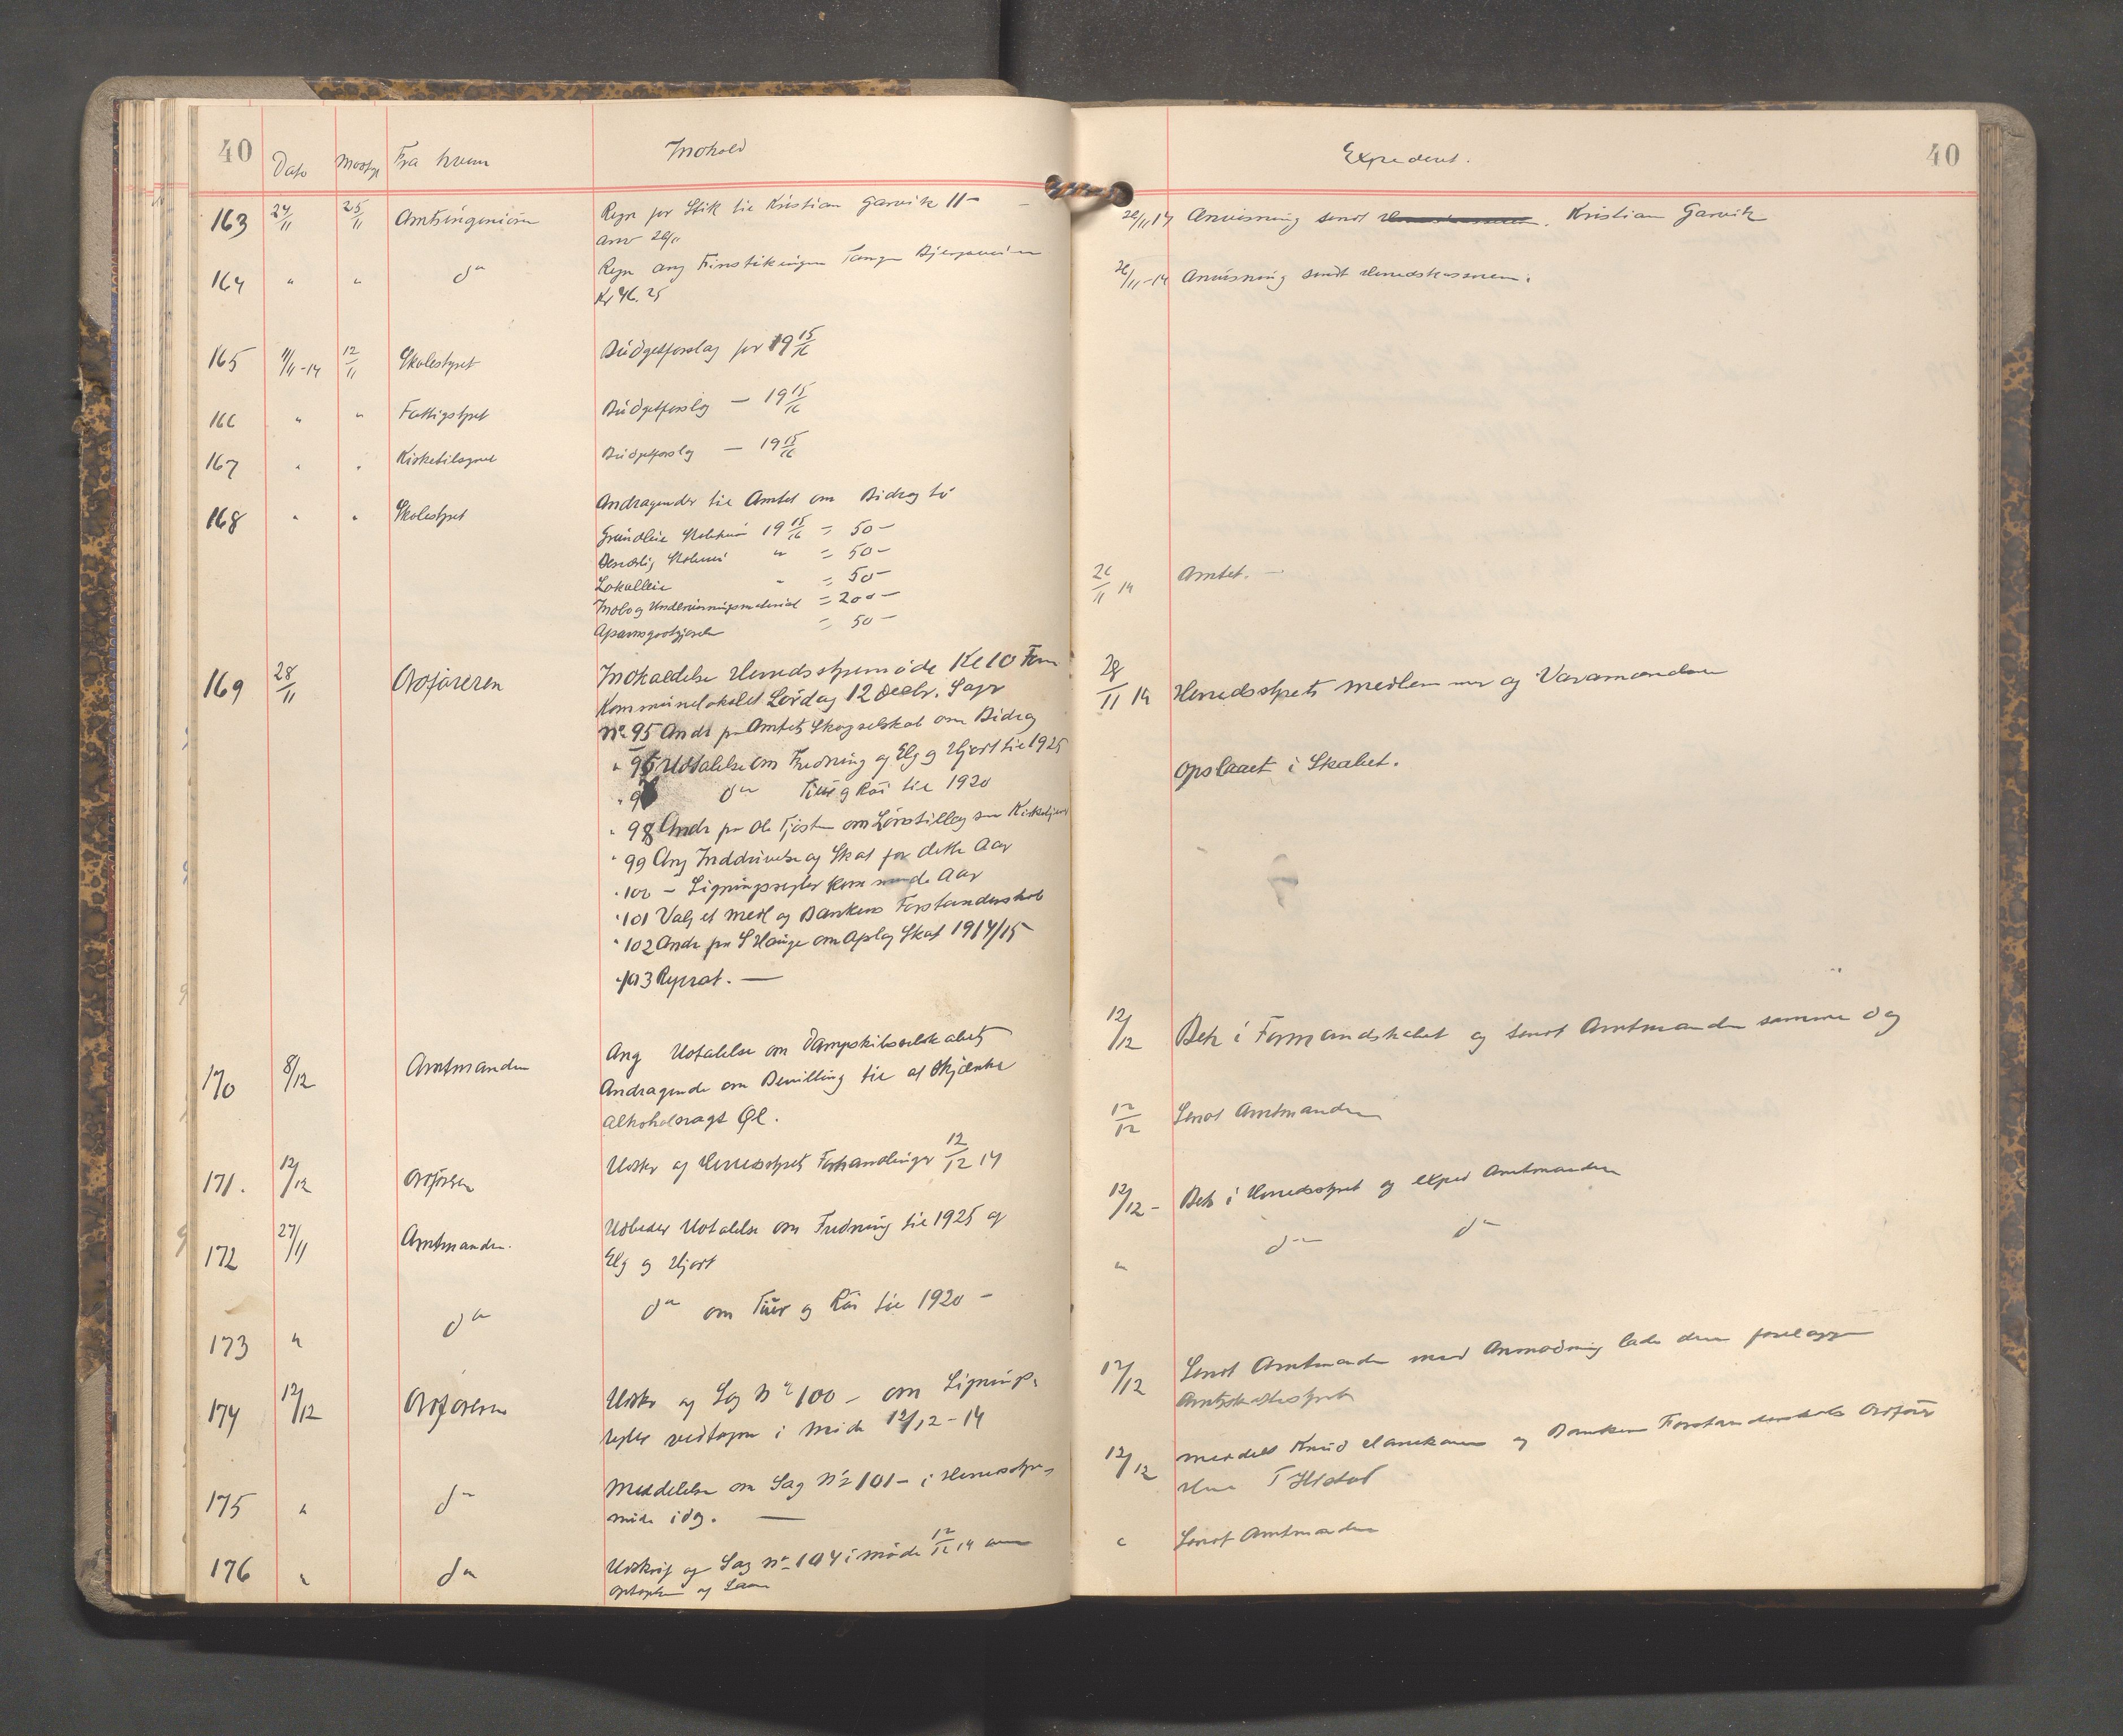 40
Dato Modtg Fra hvem Indhold
163 24/11 25/11 Amtsingeniøren Regn for Stik til Kristian Garvik 11-
anv 26/11
164 " " do Regn ang Finstikningen Tange Bjergaveien
Kr 46.25
165 11/11-14 12/11 Skolestyret Budgetforslag for 1915/16
166 " " Fattigstyret Budgetforslag — 1915/16
167 " " Kirketilsynet Budgetforslag — 1915/16
168 " " Skolestyret Andragender til Amtet om Bidrag til
Grundleie 1915/16 = 50-
" = 50-
Lokalleie " = 50-
Indb og Undervisningsmateriel = 200-
= 50-
169 28/11 Ordføreren Indkaldelse Herredsstyremøde Kl 10 Form
Kommunelokalet Lørdag 12 Decbr. Sager
No 95 Andr fra Amtets Skogselskab om Bidrag
" 96 Udtalelse om Fredning af Elg og Hjort til 1925
" 97 do Tiur og Røi til 1920
" 98 Andr fra Ole Tjøstem om Lønstillæg som Kirketjener
" 99 Ang Inddrivelse af Skat for dette Aar
" 100 - Ligningsregler kommende Aar
" 101 Valg et Medl af Bankens Forstanderskab
" 102 Andr fra S Hauge om Afslag Skat 1914/15
" 103 Repart. —
170 8/12 Amtmanden Ang Udtalelse om Dampskibsselskabets
Andragende om Bevilling til at Skjænke
alkoholsvagt Øl.
171. 12/12 Ordføreren Udskr af Herredsstyrets Forhandlinger 12/12 14
172 27/11 Amtmanden. Udbeder Udtalelse om Fredning til 1925 af
Elg og Hjort
173 " do do om Tiur og Røi til 1920 -
174 12/12 Ordføreren Udskr af Sag No 100 - om Lignings-
regler vedtagne i Møde 12/12-14
175 " do Meddelelse om Sag No 101 - i Herredsstyre-
møde idag. —
176 " do Udskrift af Sag No 104 i møde 12/12 14 om
optagelse af Laan
40
Expederet.
26/11 14 Anvisning sendt Herredskasseren. Kristian Garvik
26/11-14 Anvisning sendt Herredskasseren.
26/11 14 Amtet. —
28/11 14 Herredsstyrets medlemmer og Varamændene
Opslaaet i Skabet.
12/12 Beh i Formandskabet og sendt Amtmanden samme dag
12/12 Sendt Amtmanden
12/12 - Beh i Herredsstyret og exped Amtmanden
" do do
12/12 Sendt Amtmanden med Anmodning lade den forelægge
Amtsskattestyret
12/12 meddelt Knud og Bankens Forstanderskabs Ordfører
Hr T
" Sendt Amtmanden